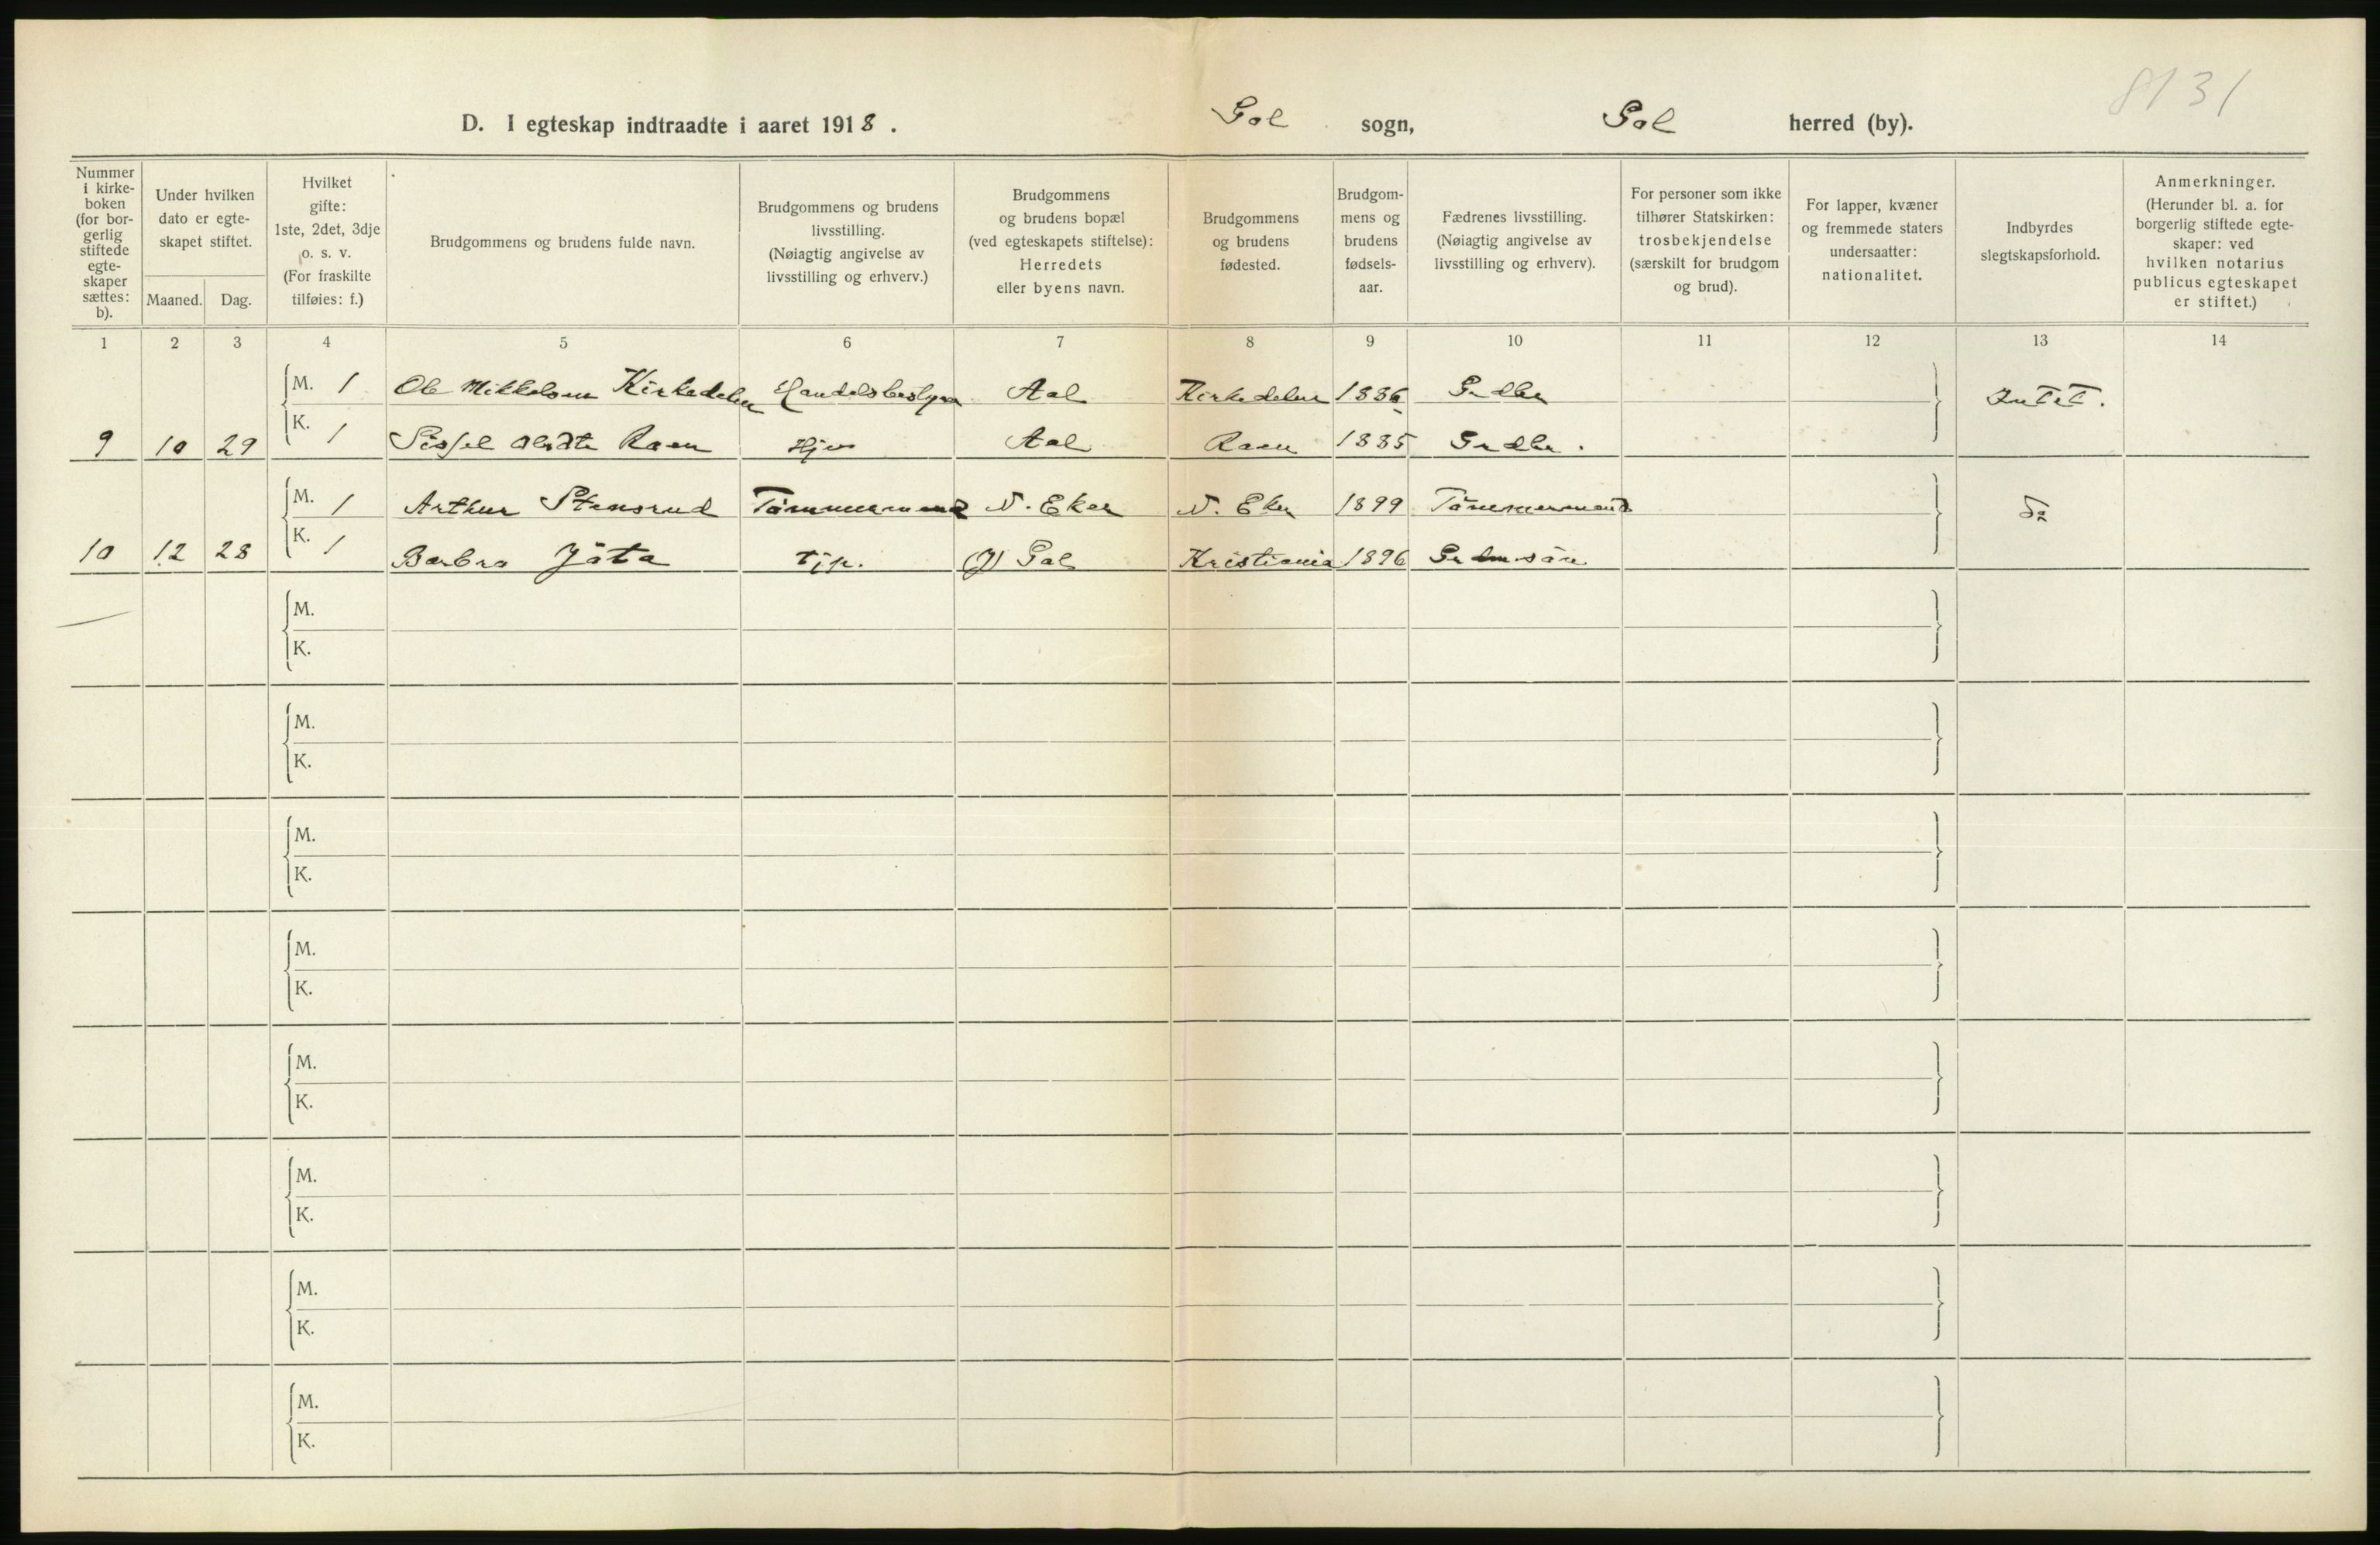 8131
D. I egteskap indtraadte i aaret 1918. Gol sogn, Gol herred (by).
Nummer i kirke-boken (for bor-gerlig stiftede egte-skaper sættes: b).
Under hvilken dato er egte-skapet stiftet.
Maaned. Dag.
Hvilket gifte: 1ste, 2det, 3dje o. s. v. (For fraskilte tilføies: f.)
Brudgommens og brudens fulde navn.
Brudgommens og brudens livsstilling. (Nøiagtig angivelse av livsstilling og erhverv.)
Brudgommens og brudens bopæl (ved egteskapets stiftelse): Herredets eller byens navn.
Brudgommens og brudens fødested.
Brudgom-mens og brudens fødsels-aar.
Fædrenes livsstilling. (Nøiagtig angivelse av livsstilling og erhverv).
For personer som ikke tilhører Statskirken: trosbekjendelse (særskilt for brudgom og brud).
For lapper, kvæner og fremmede staters undersaatter: nationalitet.
Indbyrdes slegtskapsforhold.
Anmerkninger. (Herunder bl. a. for borgerlig stiftede egte-skaper: ved hvilken notarius publicus egteskapet er stiftet.)
1 2 3 4 5 6 7 8 9 10 11 12 13 14
M. 1 Ole Mikkelsen Kirkedelen Handelsbestyrer Aal Kirkedelen 1886 Grdbr Intet.
9 10 29 K. 1 Sissel Raen Hjv Aal Raen 1885 Grdbr.
M. 1 Arthur Stensrud Tømmermand N. Eker N. Eker 1899 Tømmermand Do
10 12 28 K. 1 Barbro Jota Tjp. (J) Gol Kristiania 1896
M.
K.
M.
K.
M.
K.
M.
K.
M.
K.
M.
K.
M.
K.
M.
K.